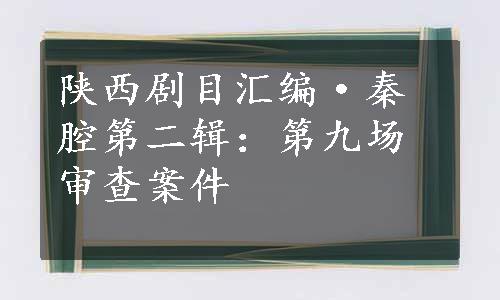 陕西剧目汇编·秦
腔第二辑：第九场
审查案件